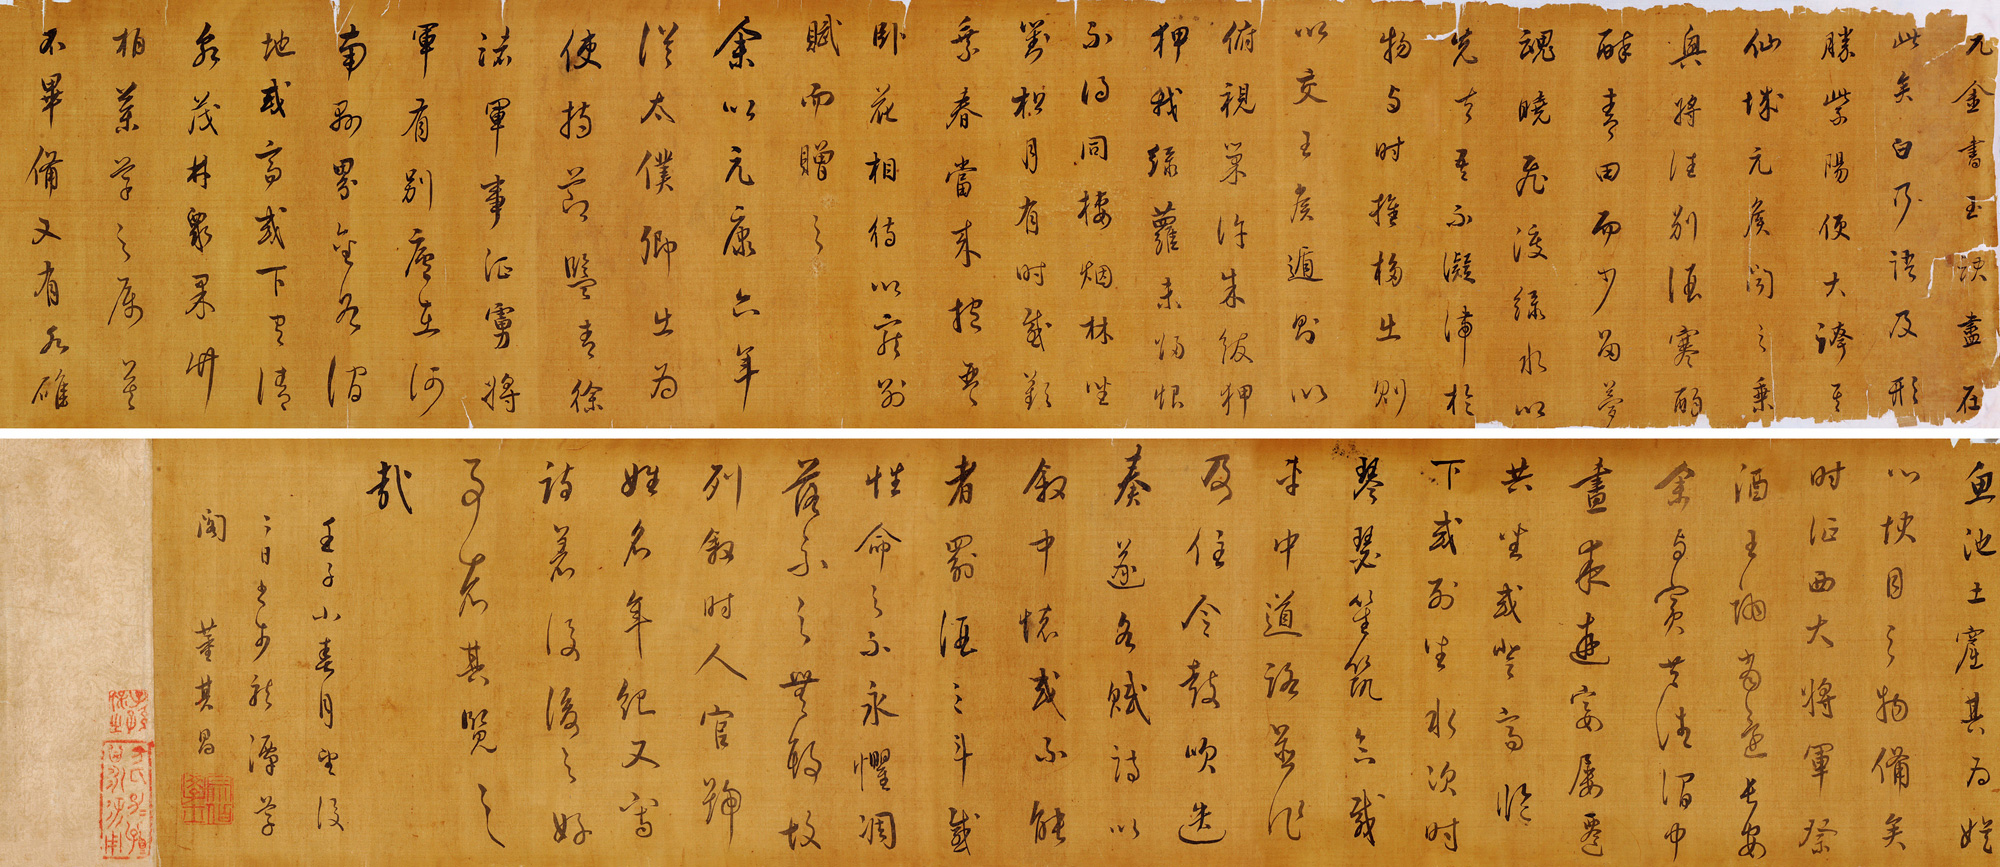 元金書玉訣盡在
此矣白乃語及形
勝紫陽便大誇其
仙城元矦聞之乘
興將往別酒寒酌
醉青田而少留夢
魂曉飛渡綠水以
先去吾不凝滯於
物与时推移出則
以交王矦遁則以
俯視巢许朱紱狎
狎我綠蘿未歸恨
不得同棲烟林坐
對松月有时或歎
乘春當来抱琴
卧花相待以寵别
賦而贈之
余以元康六年
從太僕卿出为
使持節監青徐
諸軍事征虜將
軍有别廬在河
南縣界金谷澗
地或高或下又清
泉茂林衆果竹
柏藥草之属莫
不畢備又有水碓
魚池土窟其为娱
心悦目之物備矣
时征西大將軍祭
酒王詡當還長安
余与賓共往澗中
晝夜遊宴屢遷
其坐或登高臨
下或列坐水次时
琴瑟笙筑合載
車中道路並作
及住令鼓吹迭
奏遂各賦詩以
敘中懷或不能
者罰酒三斗感
性命之不永懼凋
落之無期故
列敘时人官號
姓名年紀又寫
詩著後後之好
事者其覽之
哉
壬子小春月望後
二日書於龍潭學
閣 董其昌